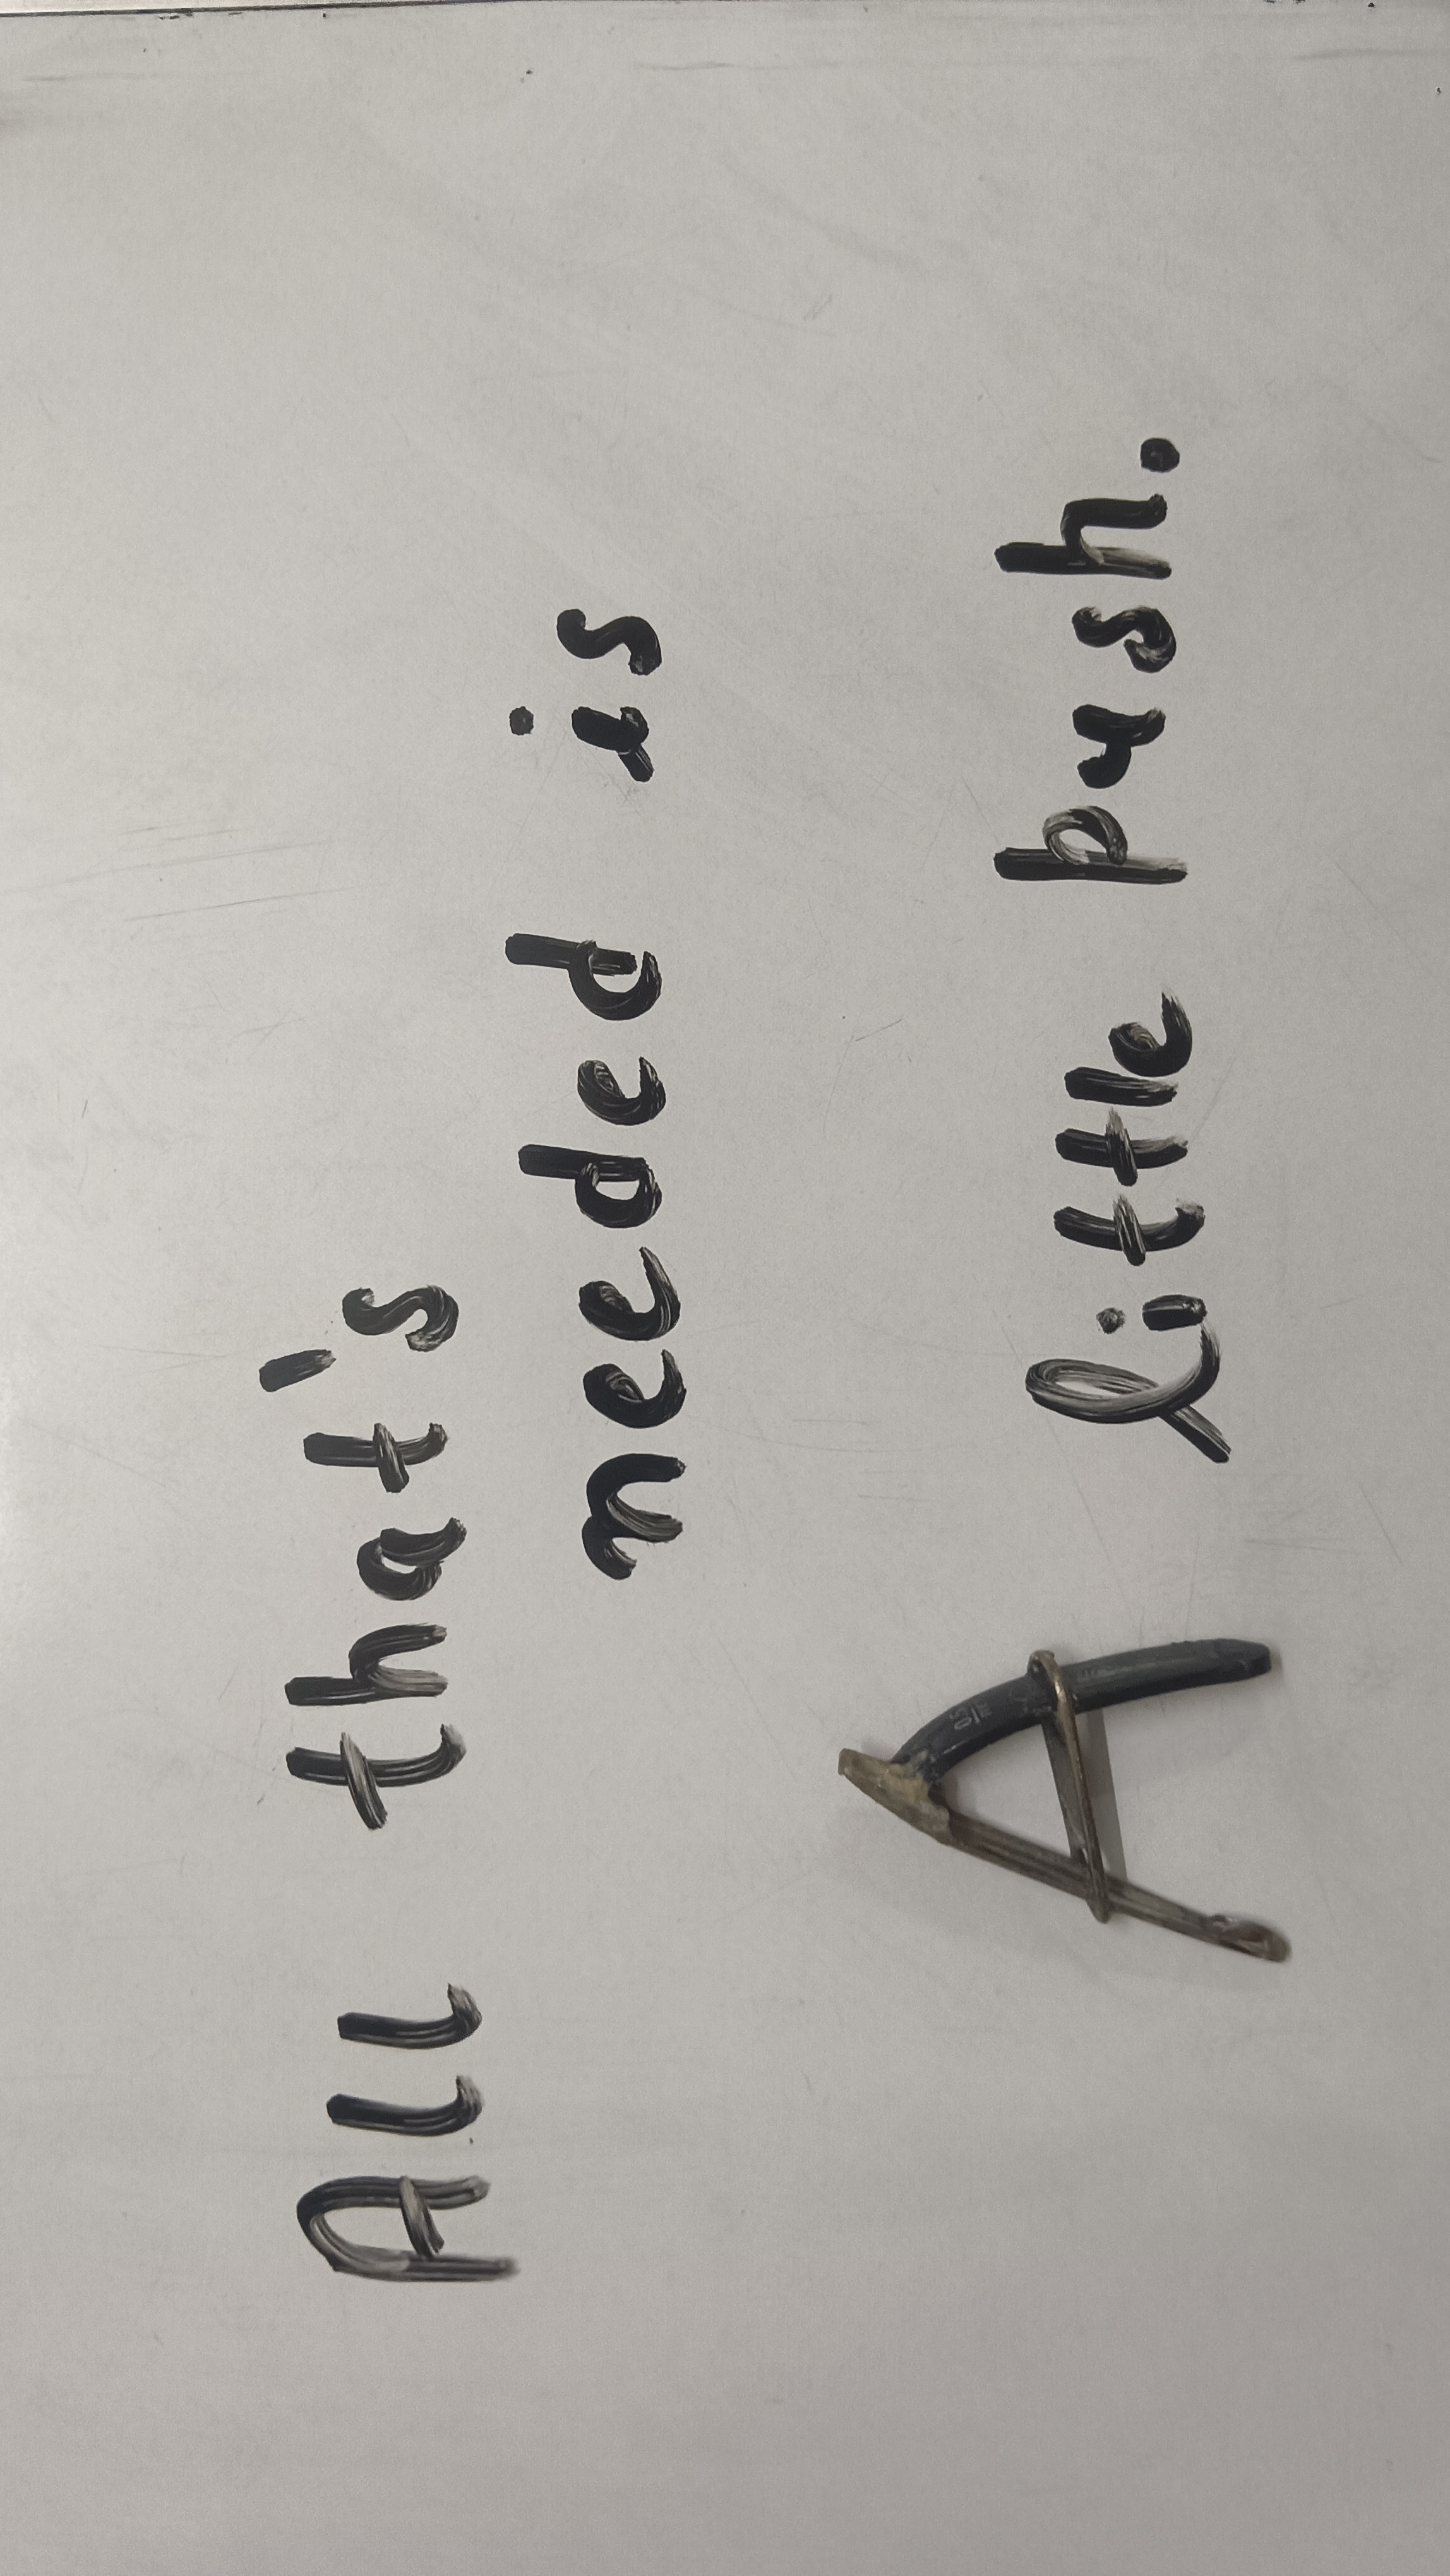 All that's
needed is
A little push.